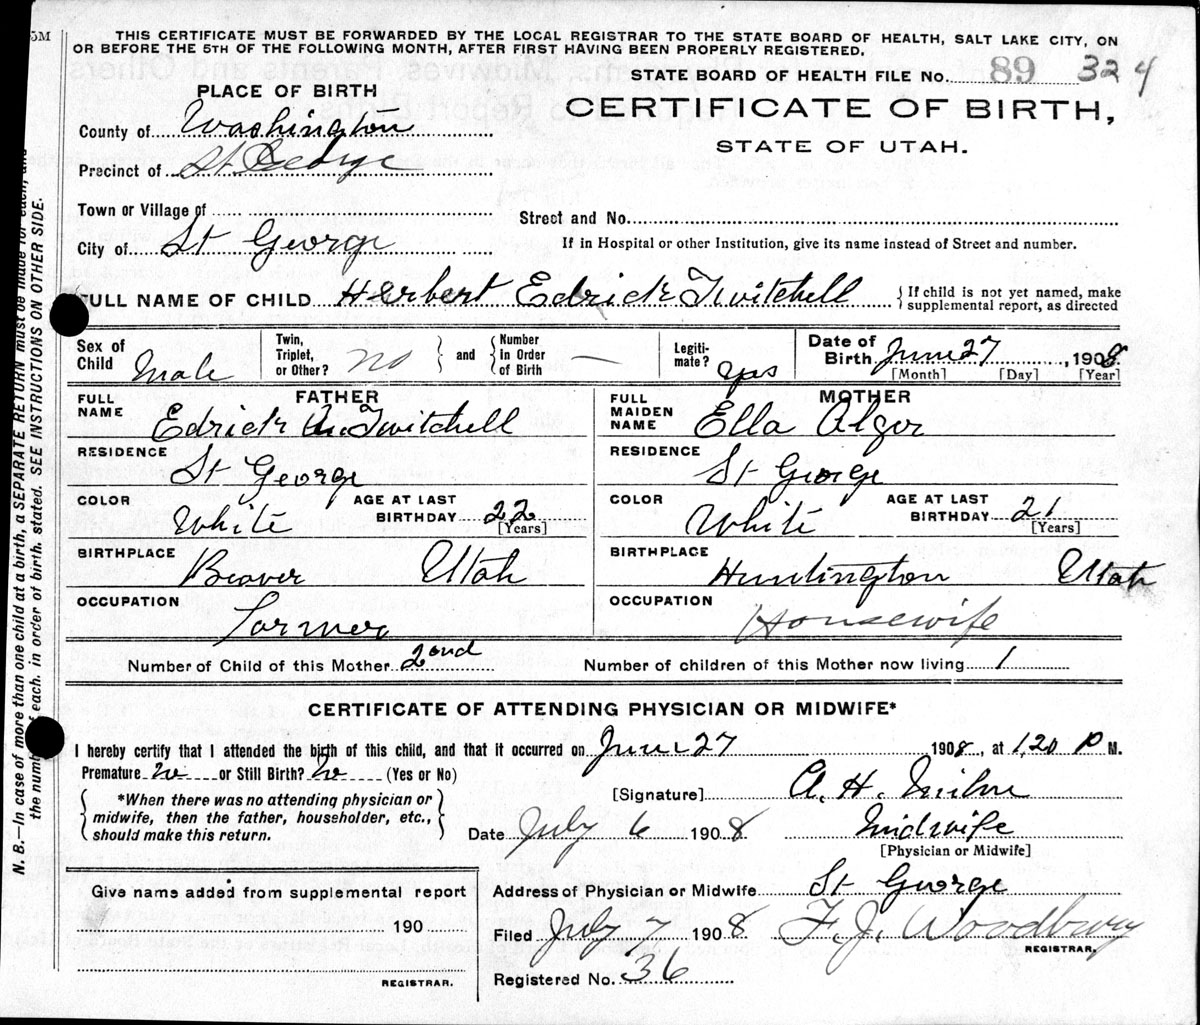 5M
THIS CERTIFICATE MUST BE FORWARDED BY THE LOCAL REGISTRAR TO THE STATE BOARD OF HEALTH, SALT LAKE CITY, ON
OR BEFORE THE 5TH OF THE FOLLOWING MONTH, AFTER FIRST HAVING BEEN PROPERLY REGISTERED.
STATE BOARD OF HEALTH FILE No. 89 324
PLACE OF BIRTH
CERTIFICATE OF BIRTH,
County of Washington
STATE OF UTAH.
Precinct of St. George
Town or Village of
Street and No.
City of St George
If in Hospital or other Institution, give its name instead of Street and number.
FULL NAME OF CHILD Herbert Edrick Twitchell { If child is not yet named, make
supplemental report, as directed
Sex of Child Male
Twin, Triplet, or Other? no } and { Number In Order of Birth —
Legiti-mate? yes
Date of Birth June 27, 1908
[Month] [Day] [Year]
FATHER
FULL NAME Edrick Twitchell
RESIDENCE St George
COLOR White AGE AT LAST BIRTHDAY 22 [Years]
BIRTHPLACE Beaver Utah
OCCUPATION Farmer
MOTHER
FULL MAIDEN NAME Ella Alger
RESIDENCE St George
COLOR White AGE AT LAST BIRTHDAY 21 [Years]
BIRTHPLACE Huntington Utah
OCCUPATION Housewife
Number of Child of this Mother 2ond Number of children of this Mother now living 1
CERTIFICATE OF ATTENDING PHYSICIAN OR MIDWIFE*
I hereby certify that I attended the birth of this child, and that it occurred on June 27 1908, at 1,20 P M.
Premature no or Still Birth? no (Yes or No)
{ *When there was no attending physician or
midwife, then the father, householder, etc.,
should make this return. }
[Signature] A. H. Milne
Date July 6 1908 Midwife
[Physician or Midwife]
Give name added from supplemental report
190
REGISTRAR.
Address of Physician or Midwife St George
Filed July 7 1908 F. J. Woodbury
REGISTRAR.
Registered No. 36
N. B.—In case of more than one child at a birth, a SEPARATE RETURN must be made for each, and
the number of each, in order of birth, stated. SEE INSTRUCTIONS ON OTHER SIDE.